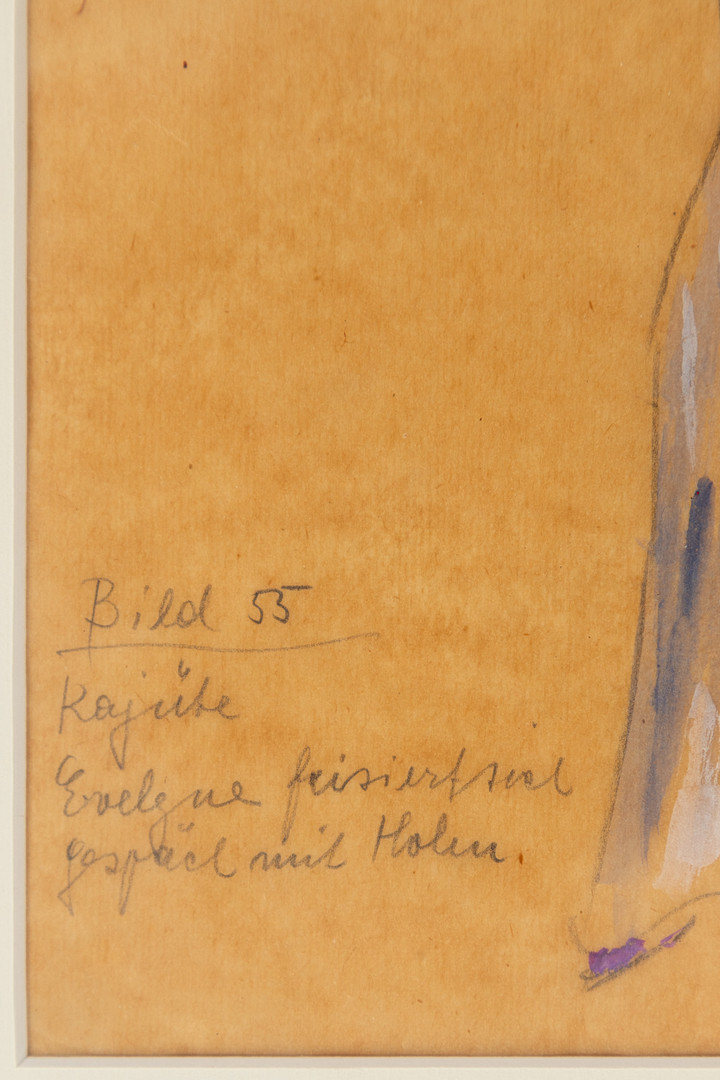 Bild 55
Kajüte
Evelyne frisiert sich
gespäch mit Holm.